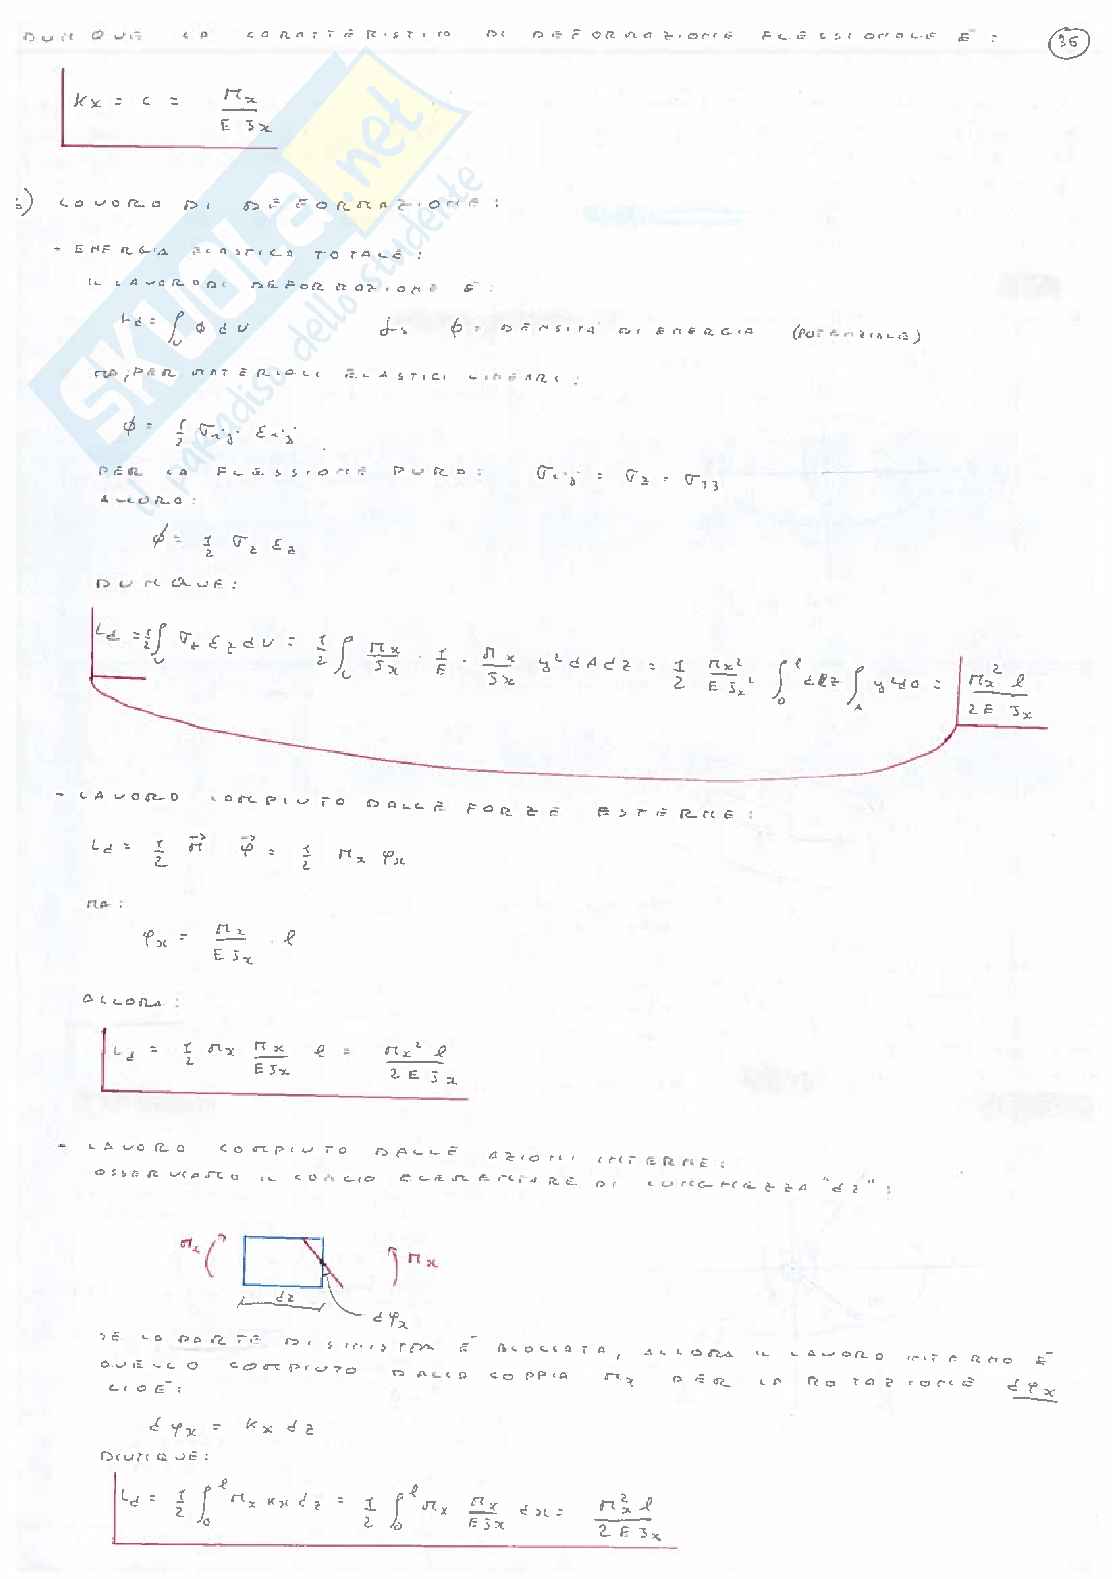 DUNQUE LA CARATTERISTICA DI DEFORMAZIONE FLESSIONALE È: 36
Kx = c = Mx / E Jx
b) LAVORO DI DEFORMAZIONE:
- ENERGIA ELASTICA TOTALE:
IL LAVORO DI DEFORMAZIONE È:
Ld = ∫V ϕ dV ϕ = DENSITÀ DI ENERGIA (POTENZIALE)
MA, PER MATERIALI ELASTICI LINEARI:
ϕ = 1/2 σij εij
PER LA FLESSIONE PURA: σij = σz = σ33
ALLORA:
ϕ = 1/2 σz εz
DUNQUE:
Ld = 1/2 ∫V σz εz dV = 1/2 ∫V Mx/Jx · 1/E · Mx/Jx y² dA dz = 1/2 Mx²/E Jx² ∫0^l dz ∫A y² dA = Mx² l / 2 E Jx
- LAVORO COMPIUTO DALLE FORZE ESTERNE:
Ld = 1/2 M⃗ φ⃗ = 1/2 Mx φx
MA:
φx = Mx / E Jx · l
ALLORA:
Ld = 1/2 Mx Mx/E Jx l = Mx² l / 2 E Jx
- LAVORO COMPIUTO DALLE AZIONI INTERNE:
OSSERVIAMO IL CONCIO ELEMENTARE DI LUNGHEZZA "dz":
Mx Mx
dz
dφx
SE LA PARTE DI SINISTRA È BLOCCATA, ALLORA IL LAVORO INTERNO È
QUELLO COMPIUTO DALLA COPPIA Mx PER LA ROTAZIONE dφx
CIOÈ:
dφx = Kx dz
DUNQUE:
Ld = 1/2 ∫0^l Mx Kx dz = 1/2 ∫0^l Mx Mx/E Jx dx = Mx² l / 2 E Jx
SKUOLA.net
il paradiso dello studente